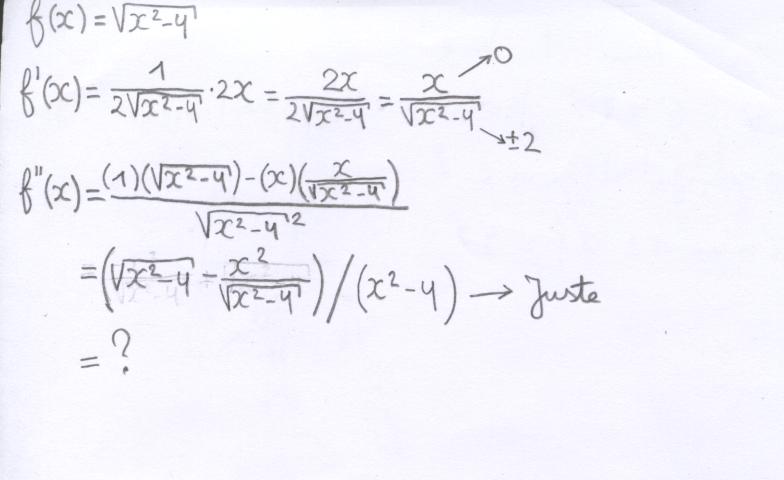 f(x) = √(x²-4)
f'(x) = 1/(2√(x²-4)) · 2x = 2x/(2√(x²-4)) = x/√(x²-4) → 0 → ±2
f''(x) = ((1)(√(x²-4)) - (x)(x/√(x²-4)))/√(x²-4)²
= (√(x²-4) - x²/√(x²-4)) / (x²-4) → Juste
= ?